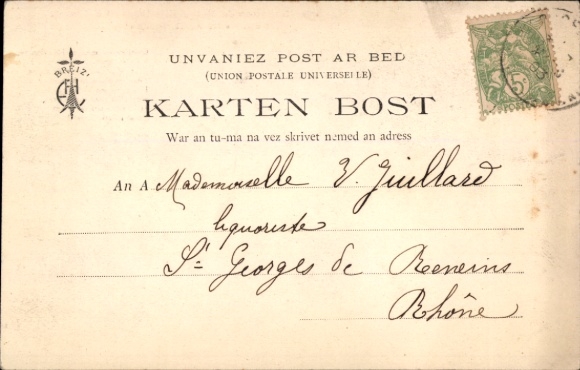 BREIZ
UNVANIEZ POST AR BED
(UNION POSTALE UNIVERSELLE)
KARTEN BOST
War an tu-ma na vez skrivet nemed an adress
An A Mademoiselle V. Guillard
liquoriste
St Georges de Reneins
Rhône
5c